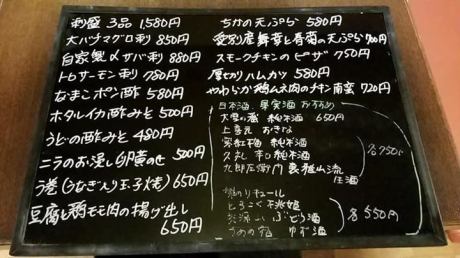 刺盛 3品 1,580円
大バチマグロ刺 850円
自家製〆サバ刺 880円
トロサーモン刺 780円
なまこポン酢 580円
ホタルイカ酢みそ 500円
うどの酢みそ 480円
ニラのお浸し卵黄のせ 500円
う巻(うなぎ入り玉子焼) 650円
豆腐と鶏モモ肉の揚げ出し
650円
ちかの天ぷら 580円
愛別産舞茸と春菊の天ぷら 700円
スモークチキンのピザ 750円
厚切りハムカツ 580円
やわらか鶏ムネ肉のチキン南蛮 720円
日本酒、果実酒 おすすめ
大雪の蔵 純米酒 650円
上喜元 おきな
純米酒
辛口純米酒
九郎左衛門 裏雅山流
各750円
リキュール
とろこく 桃姫
ぶどう酒
ゆず酒
各550円